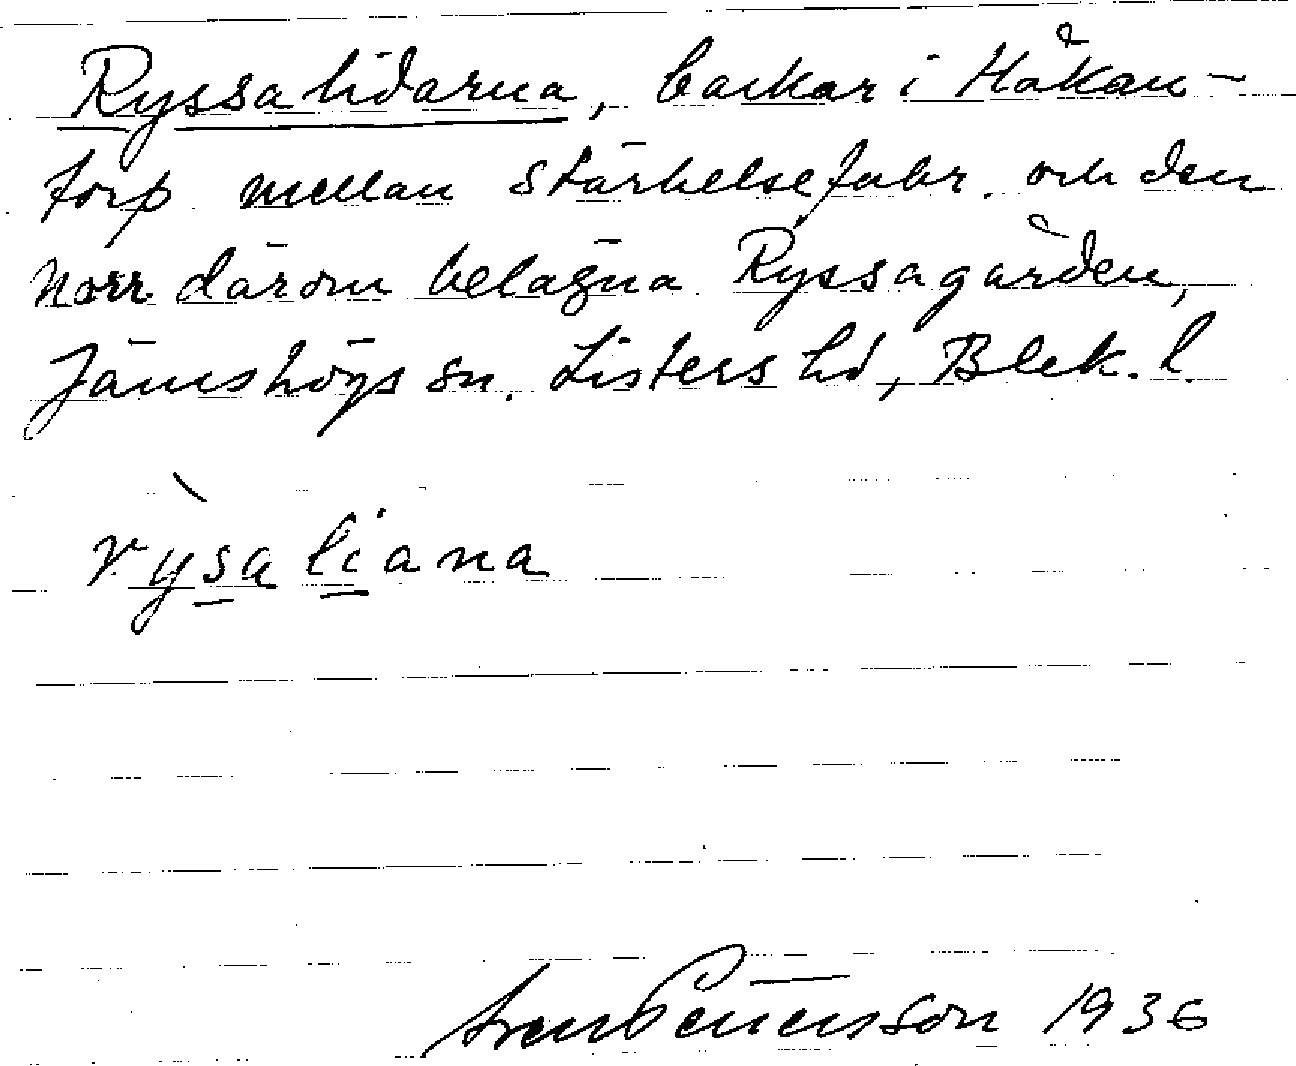 Ryssalidarna, backar i Håkan-
torp mellan stärkelsefabr. och den
norr därom belägna Ryssagården,
Jämshögs sn. Listers hd, Blek. l.
rỳsaliana
Sven Benensson 1936